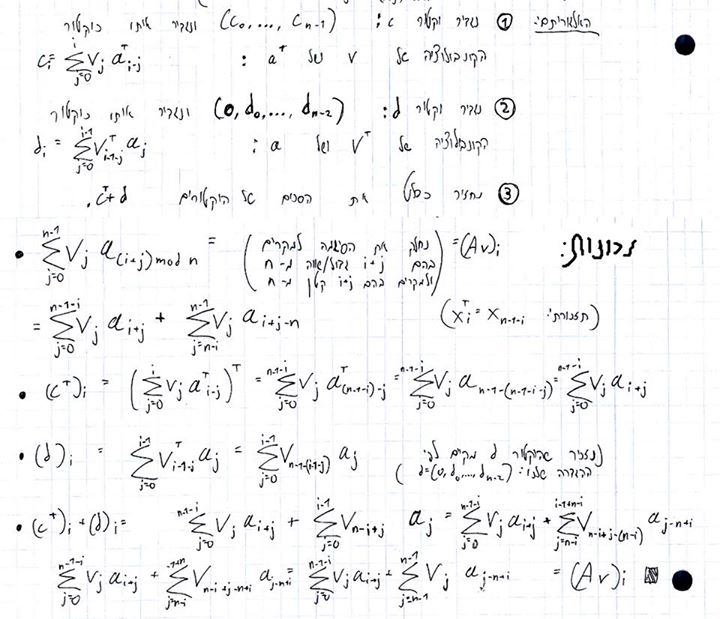 האלגוריתם: ① נגדיר וקטור c: (c₀,..., cₙ₋₁) ונגדיר אותו כוקטור
הקונבולוציה של v ושל aᵀ : cᵢ = Σ_{j=0}^{i} vⱼ aᵀ_{i-j}
② נגדיר וקטור d: (0, d₀,..., dₙ₋₂) ונגדיר אותו כוקטור
הקונבולוציה של vᵀ ושל a : dᵢ = Σ_{j=0}^{i-1} vᵀ_{i-1-j} aⱼ
③ נחזיר כפלט את הסכום של הוקטורים cᵀ+d.
נכונות:
• Σ_{j=0}^{n-1} vⱼ a_{(i+j) mod n} = (נחלק את הסיגמה למקרים בהם i+j גדול/שווה מ-n ולמקרים בהם i+j קטן מ-n) = (Av)ᵢ
= Σ_{j=0}^{n-1-i} vⱼ a_{i+j} + Σ_{j=n-i}^{n-1} vⱼ a_{i+j-n} (תזכורת: xᵢᵀ = x_{n-1-i})
• (cᵀ)ᵢ = (Σ_{j=0}^{i} vⱼ aᵀ_{i-j})ᵀ = Σ_{j=0}^{n-1-i} vⱼ aᵀ_{(n-1-i)-j} = Σ_{j=0}^{n-1-i} vⱼ a_{n-1-(n-1-i-j)} = Σ_{j=0}^{n-1-i} vⱼ a_{i+j}
• (d)ᵢ = Σ_{j=0}^{i-1} vᵀ_{i-1-j} aⱼ = Σ_{j=0}^{i-1} v_{n-1-(i-1-j)} aⱼ (נזכיר שהוקטור d מקיים לפי הגדרה שלנו: d=(0, d₀,..., dₙ₋₂))
• (cᵀ)ᵢ + (d)ᵢ = Σ_{j=0}^{n-1-i} vⱼ a_{i+j} + Σ_{j=0}^{i-1} v_{n-i+j} aⱼ = Σ_{j=0}^{n-1-i} vⱼ a_{i+j} + Σ_{j=n-i}^{i-1+n-i} v_{n-i+j-(n-i)} a_{j-n+i}
Σ_{j=0}^{n-1-i} vⱼ a_{i+j} + Σ_{j=n-i}^{-1+n} v_{n-i+j-n+i} a_{j-n+i} = Σ_{j=0}^{n-1-i} vⱼ a_{i+j} + Σ_{j=n-1}^{n-1} vⱼ a_{j-n+i} = (Av)ᵢ